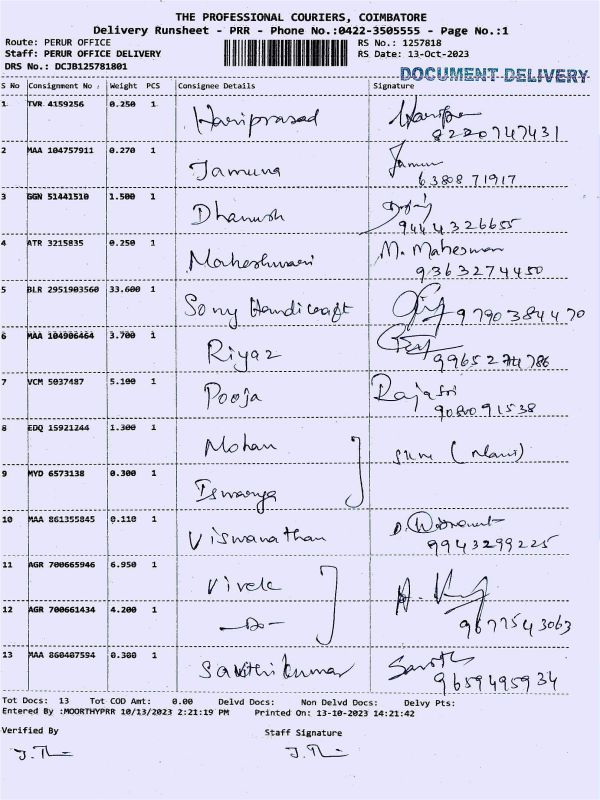 THE PROFESSIONAL COURIERS, COIMBATORE
Delivery Runsheet - PRR - Phone No.:0422-3505555 - Page No.:1
Route: PERUR OFFICE RS No.: 1257818
Staff: PERUR OFFICE DELIVERY RS Date: 13-Oct-2023
DRS No.: DCJB125781801 DOCUMENT DELIVERY
S No Consignment No : Weight PCS Consignee Details Signature
1 TVR 4159256 0.250 1 Hariprasad
8220747431
2 MAA 104757911 0.270 1 Jamuna
6380871917
3 GGN 51441510 1.500 1 Dhanush
9444326655
4 ATR 3215835 0.250 1 Maheshwari M. Maheswari
9363274450
5 BLR 2951903560 33.600 1 Sony Handicraft 9790384470
6 MAA 104906464 3.700 1 Riyaz
9965274786
7 VCM 5037487 5.100 1 Pooja Rajasri
9080091538
8 EDQ 15921244 1.300 1 Mohan
9 MYD 6573138 0.300 1 Iswarya
10 MAA 861355845 0.110 1 Viswanathan
9943299225
11 AGR 700665946 6.950 1 Vivek
12 AGR 700661434 4.200 1 -Do-
9677543063
13 MAA 860407594 0.300 1 Savithikumar
9659495934
Tot Docs: 13 Tot COD Amt: 0.00 Delvd Docs: Non Delvd Docs: Delvy Pts:
Entered By :MOORTHYPRR 10/13/2023 2:21:19 PM Printed On: 13-10-2023 14:21:42
Verified By Staff Signature